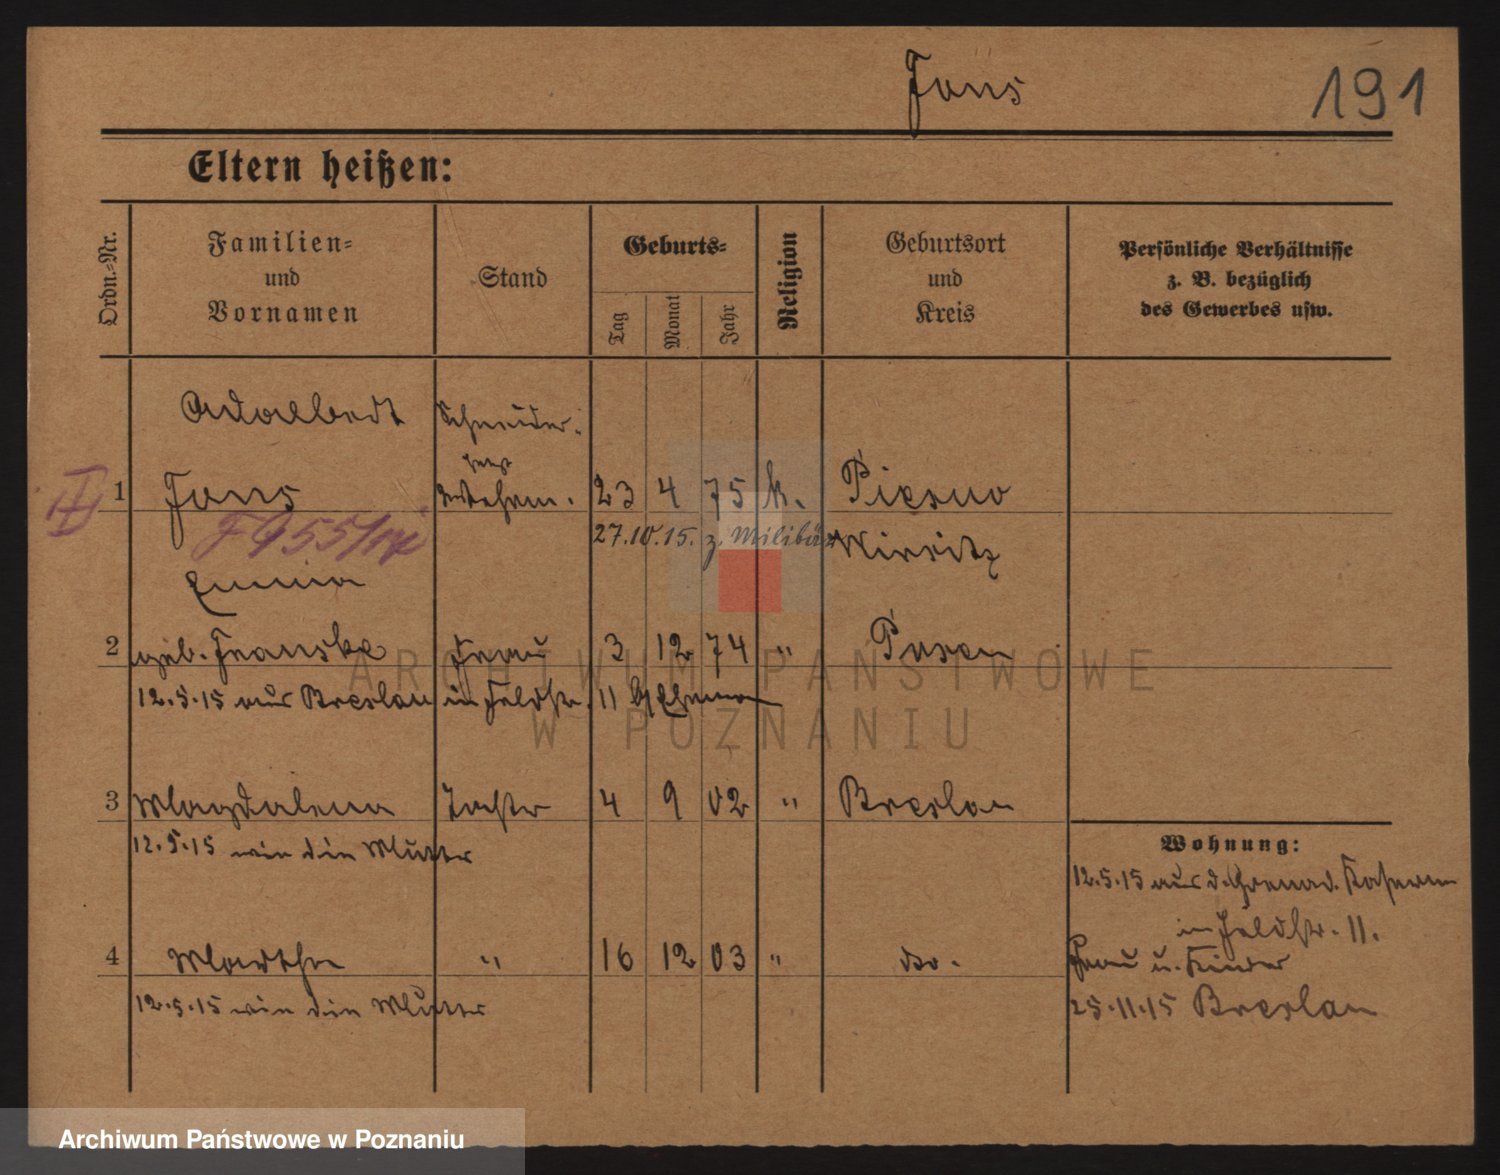 Jans
191
Eltern heißen:
Ordn.-Nr.
Familien-
und
Vornamen
Stand
Geburts-
Tag
Monat
Jahr
Religion
Geburtsort
und
Kreis
Persönliche Verhältnisse
z. B. bezüglich
des Gewerbes usw.
Adalbert
Schneider.
1 Jans 23 4 75 k.
27.10.15. z. Militär Wirsitz
Emma
2 geb. Franske Frau 3 12 74 " Posen
12.5.15 aus Breslau in Feldstr. 11 b/Ehemann
3 Magdalena Tochter 4 9 02 " Breslau
12.5.15 wie die Mutter
Wohnung:
12.5.15 aus d. Grenad. Kaserne
in Feldstr. 11.
4 Marthe " 16 12 03 " do.
Frau u. Kinder
12.5.15 wie die Mutter
25.11.15 Breslau
ARCHIWUM PAŃSTWOWE
W POZNANIU
Archiwum Państwowe w Poznaniu